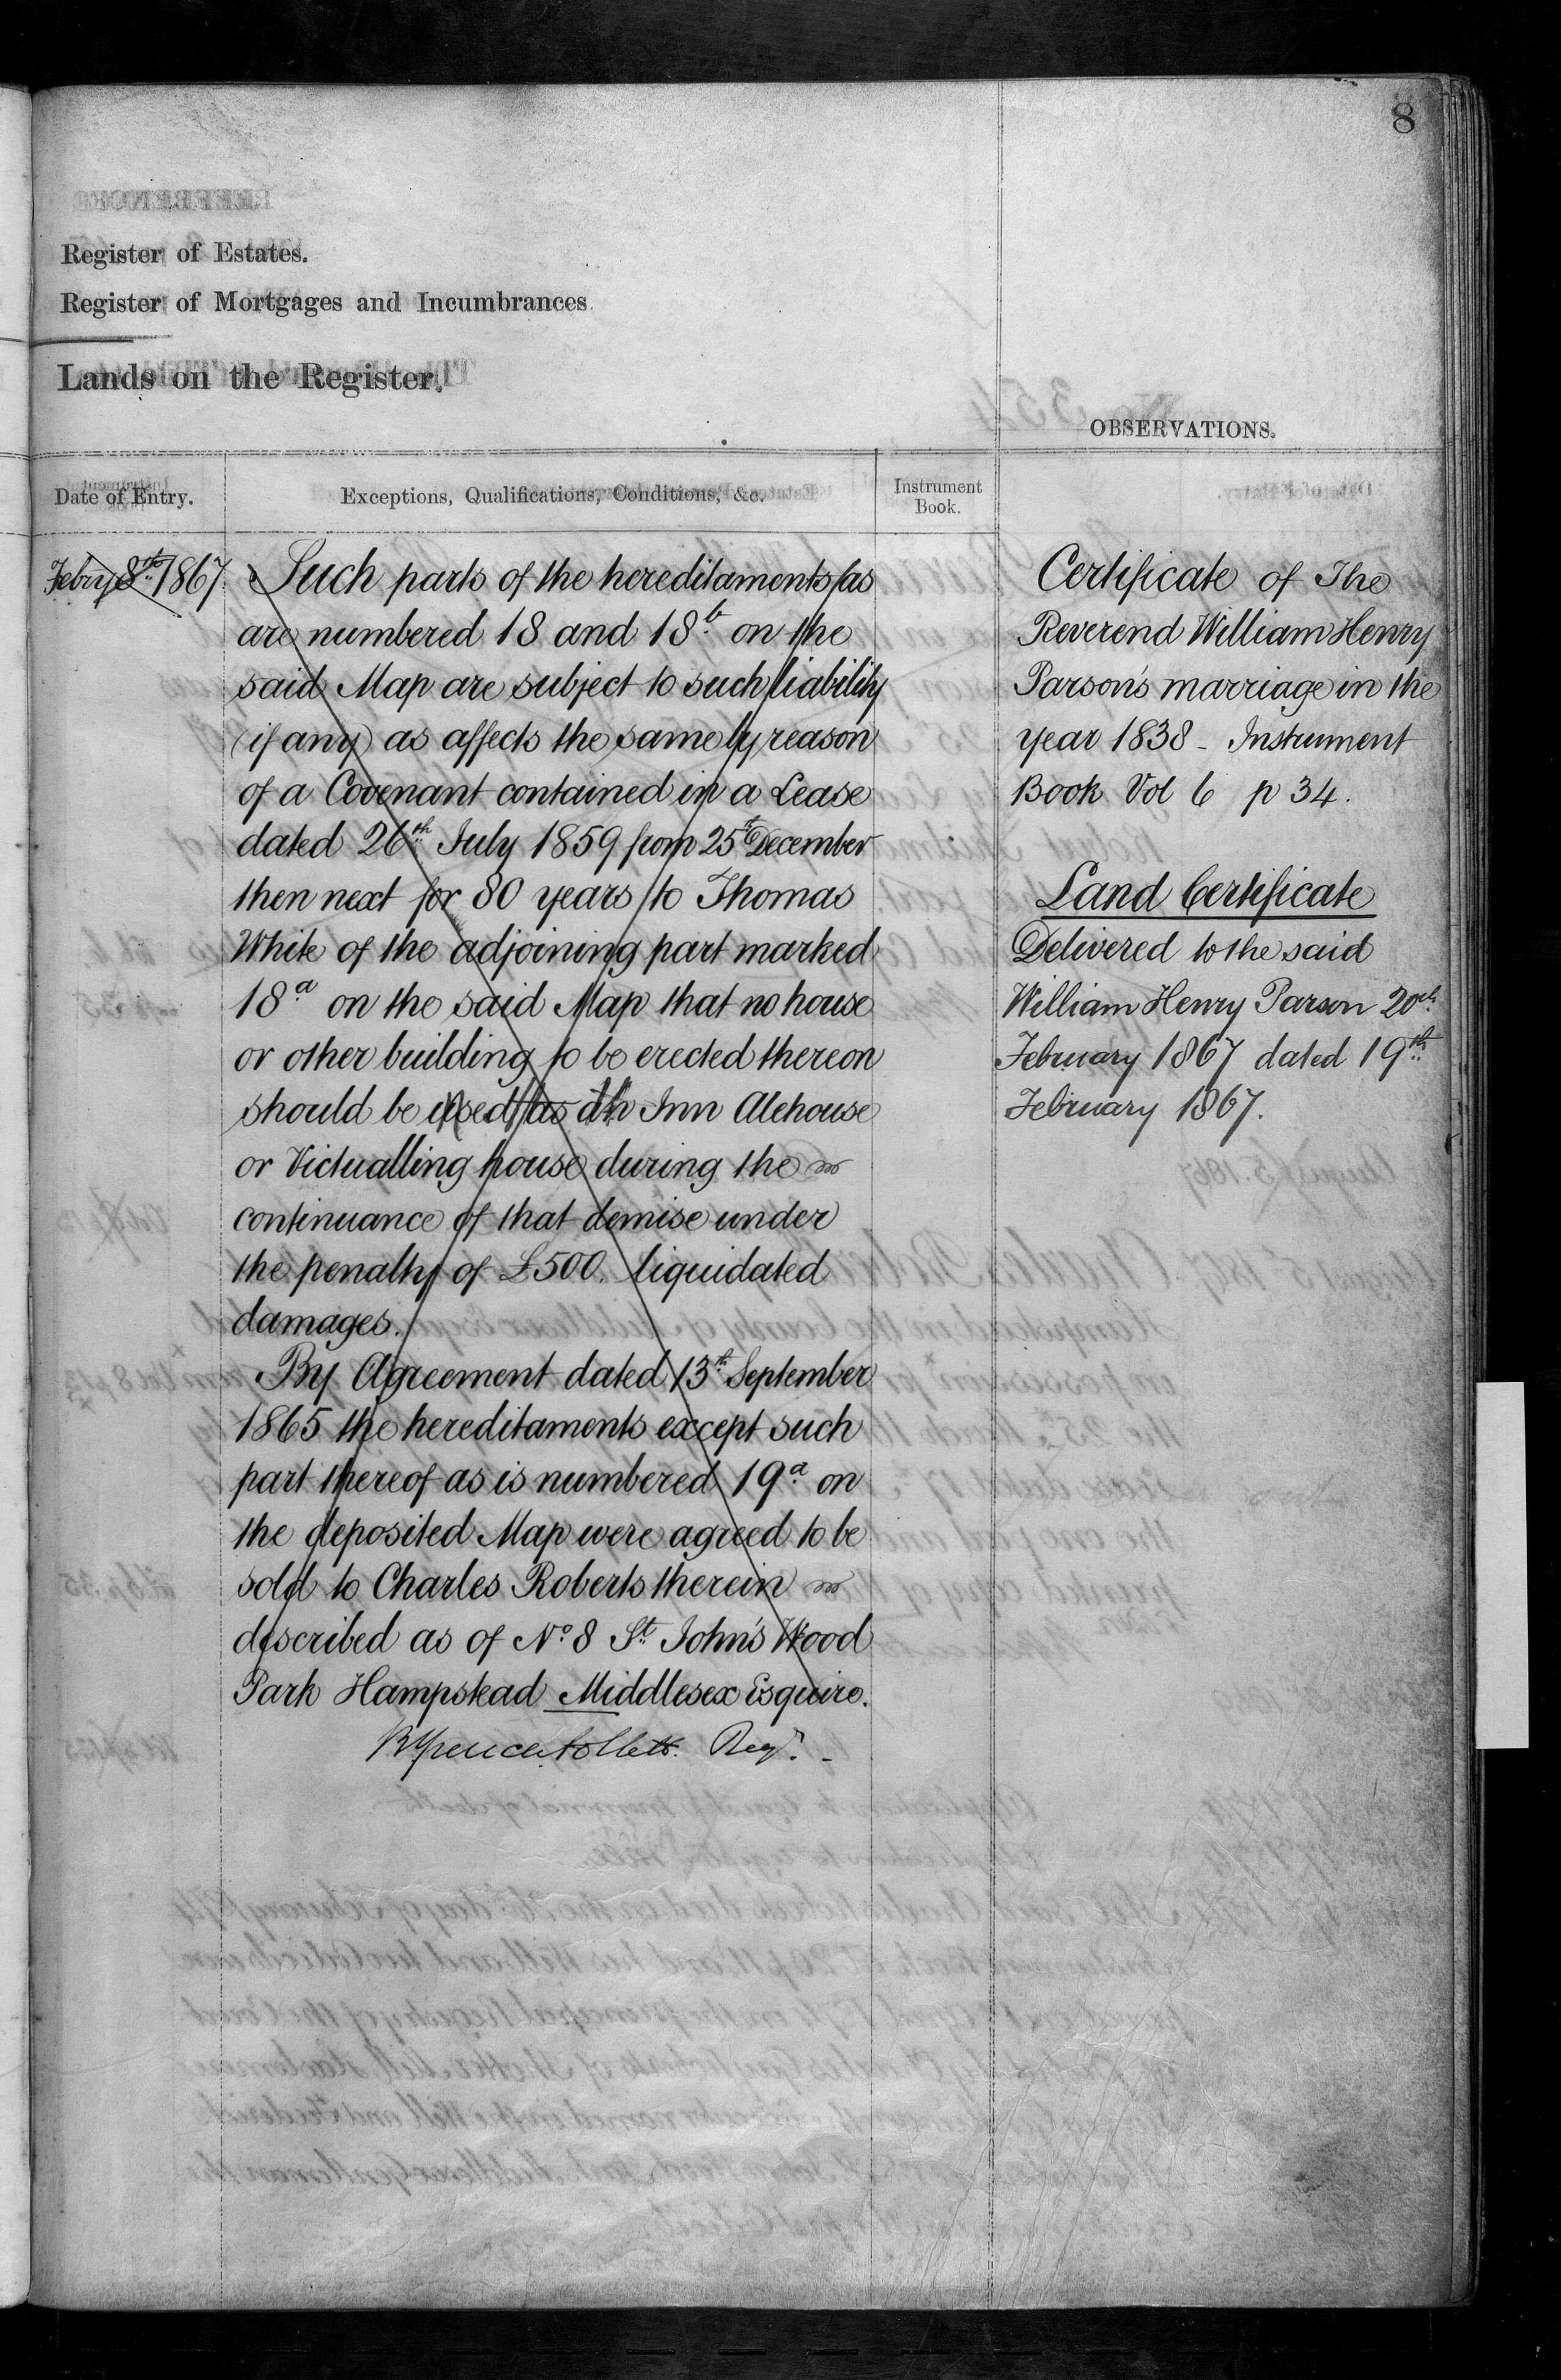 8
Register of Estates.
Register of Mortgages and Incumbrances.
Lands on the Register.
OBSERVATIONS.
Date of Entry.
Exceptions, Qualifications, Conditions, &c.
Instrument
Book.
Febry 8th 1867.
Such parts of the hereditaments as
are numbered 18 and 18b on the
said Map are subject to such liability
(if any) as affects the same by reason
of a Covenant contained in a Lease
dated 26th July 1859 from 25th December
then next for 80 years to Thomas
White of the adjoining part marked
18a on the said Map that no house
or other building to be erected thereon
should be used as an Inn Alehouse
or Victualling house during the
continuance of that demise under
the penalty of £500. liquidated
damages.
By Agreement dated 13th September
1865 the hereditaments except such
part thereof as is numbered 19a on
the deposited Map were agreed to be
sold to Charles Roberts therein
described as of No 8 St John's Wood
Park Hampstead Middlesex Esquire.
Regr. -
Certificate of The
Reverend William Henry
Parson's marriage in the
year 1838 - Instrument
Book Vol 6 p 34.
Land Certificate
Delivered to the said
William Henry Parson 20th
February 1867 dated 19th
February 1867.